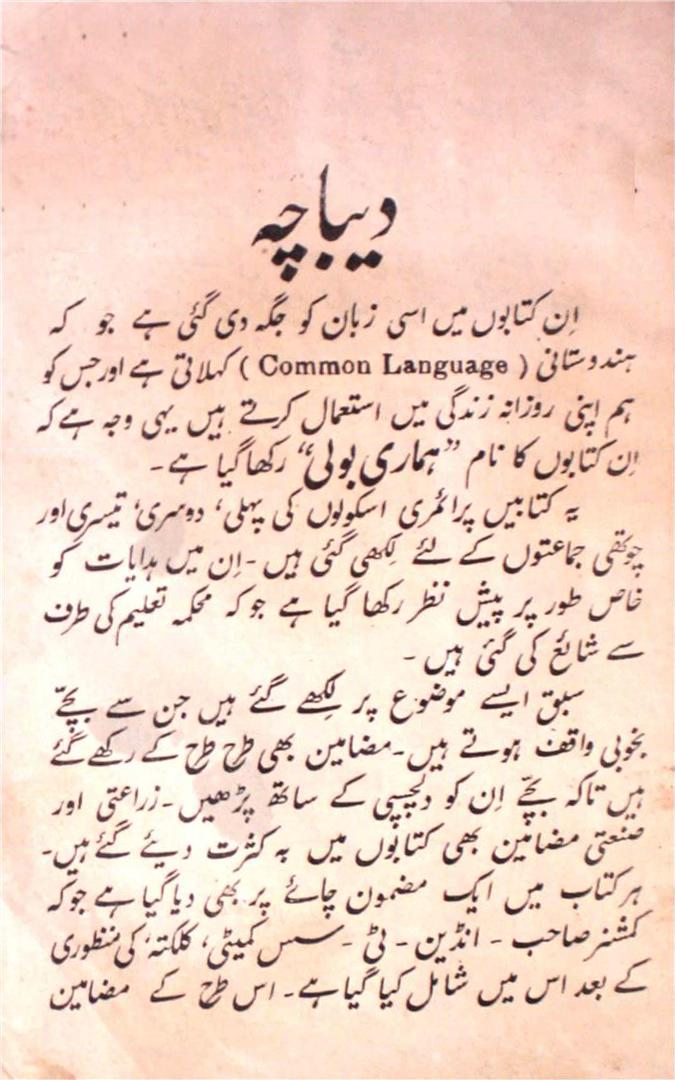 دیباچہ
اِن کتابوں میں اسی زبان کو جگہ دی گئی ہے جو کہ
ہندوستانی ( Common Language ) کہلاتی ہے اور جس کو
ہم اپنی روزانہ زندگی میں استعمال کرتے ہیں یہی وجہ ہے کہ
اِن کتابوں کا نام ”ہماری بولی“ رکھا گیا ہے۔
یہ کتابیں پرائمری اسکولوں کی پہلی، دوسری، تیسری اور
چوتھی جماعتوں کے لئے لِکھی گئی ہیں۔ اِن میں ہدایات کو
خاص طور پر پیش نظر رکھا گیا ہے جو کہ محکمہ تعلیم کی طرف
سے شائع کی گئی ہیں۔
سبق ایسے موضوع پر لِکھے گئے ہیں جن سے بچّے
بخوبی واقف ہوتے ہیں۔ مضامین بھی طرح طرح کے رکھے گئے
ہیں تاکہ بچّے اِن کو دلچسپی کے ساتھ پڑھیں۔ زراعتی اور
صنعتی مضامین بھی کتابوں میں بہ کثرت دیئے گئے ہیں۔
ہر کتاب میں ایک مضمون چائے پر بھی دیا گیا ہے جو کہ
کمشنر صاحب ۔ انڈین ۔ ٹی ۔ سس کمیٹی، کلکتہ، کی منظوری
کے بعد اس میں شامل کیا گیا ہے۔ اس طرح کے مضامین